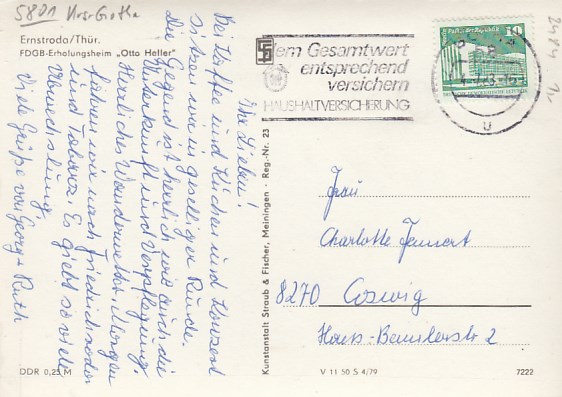 5801 Krs. Gotha
Ernstroda/Thür.
FDGB-Erholungsheim „Otto Heller"
Ihr Lieben!
Bei Kaffee und Kuchen und Konzert
sitzen wir in geselliger Runde.
Die Gegend ist herrlich wie auch die
Unterkunft und Verpflegung.
Herrliches Wanderwetter. Morgen
fahren wir nach Friedrichroda
und Tabarz. Es giebt so viele
Abwechslung.
Viele Grüße von George Ruth
DDR 0,25 M
Kunstanstalt Straub & Fischer, Meiningen · Reg.-Nr. 23
dem Gesamtwert
entsprechend
versichern
HAUSHALTVERSICHERUNG
Palast der Republik
10
58
u
2484
Frau
Charlotte
8270 Coswig
2
V 11 50 S 4/79
7222